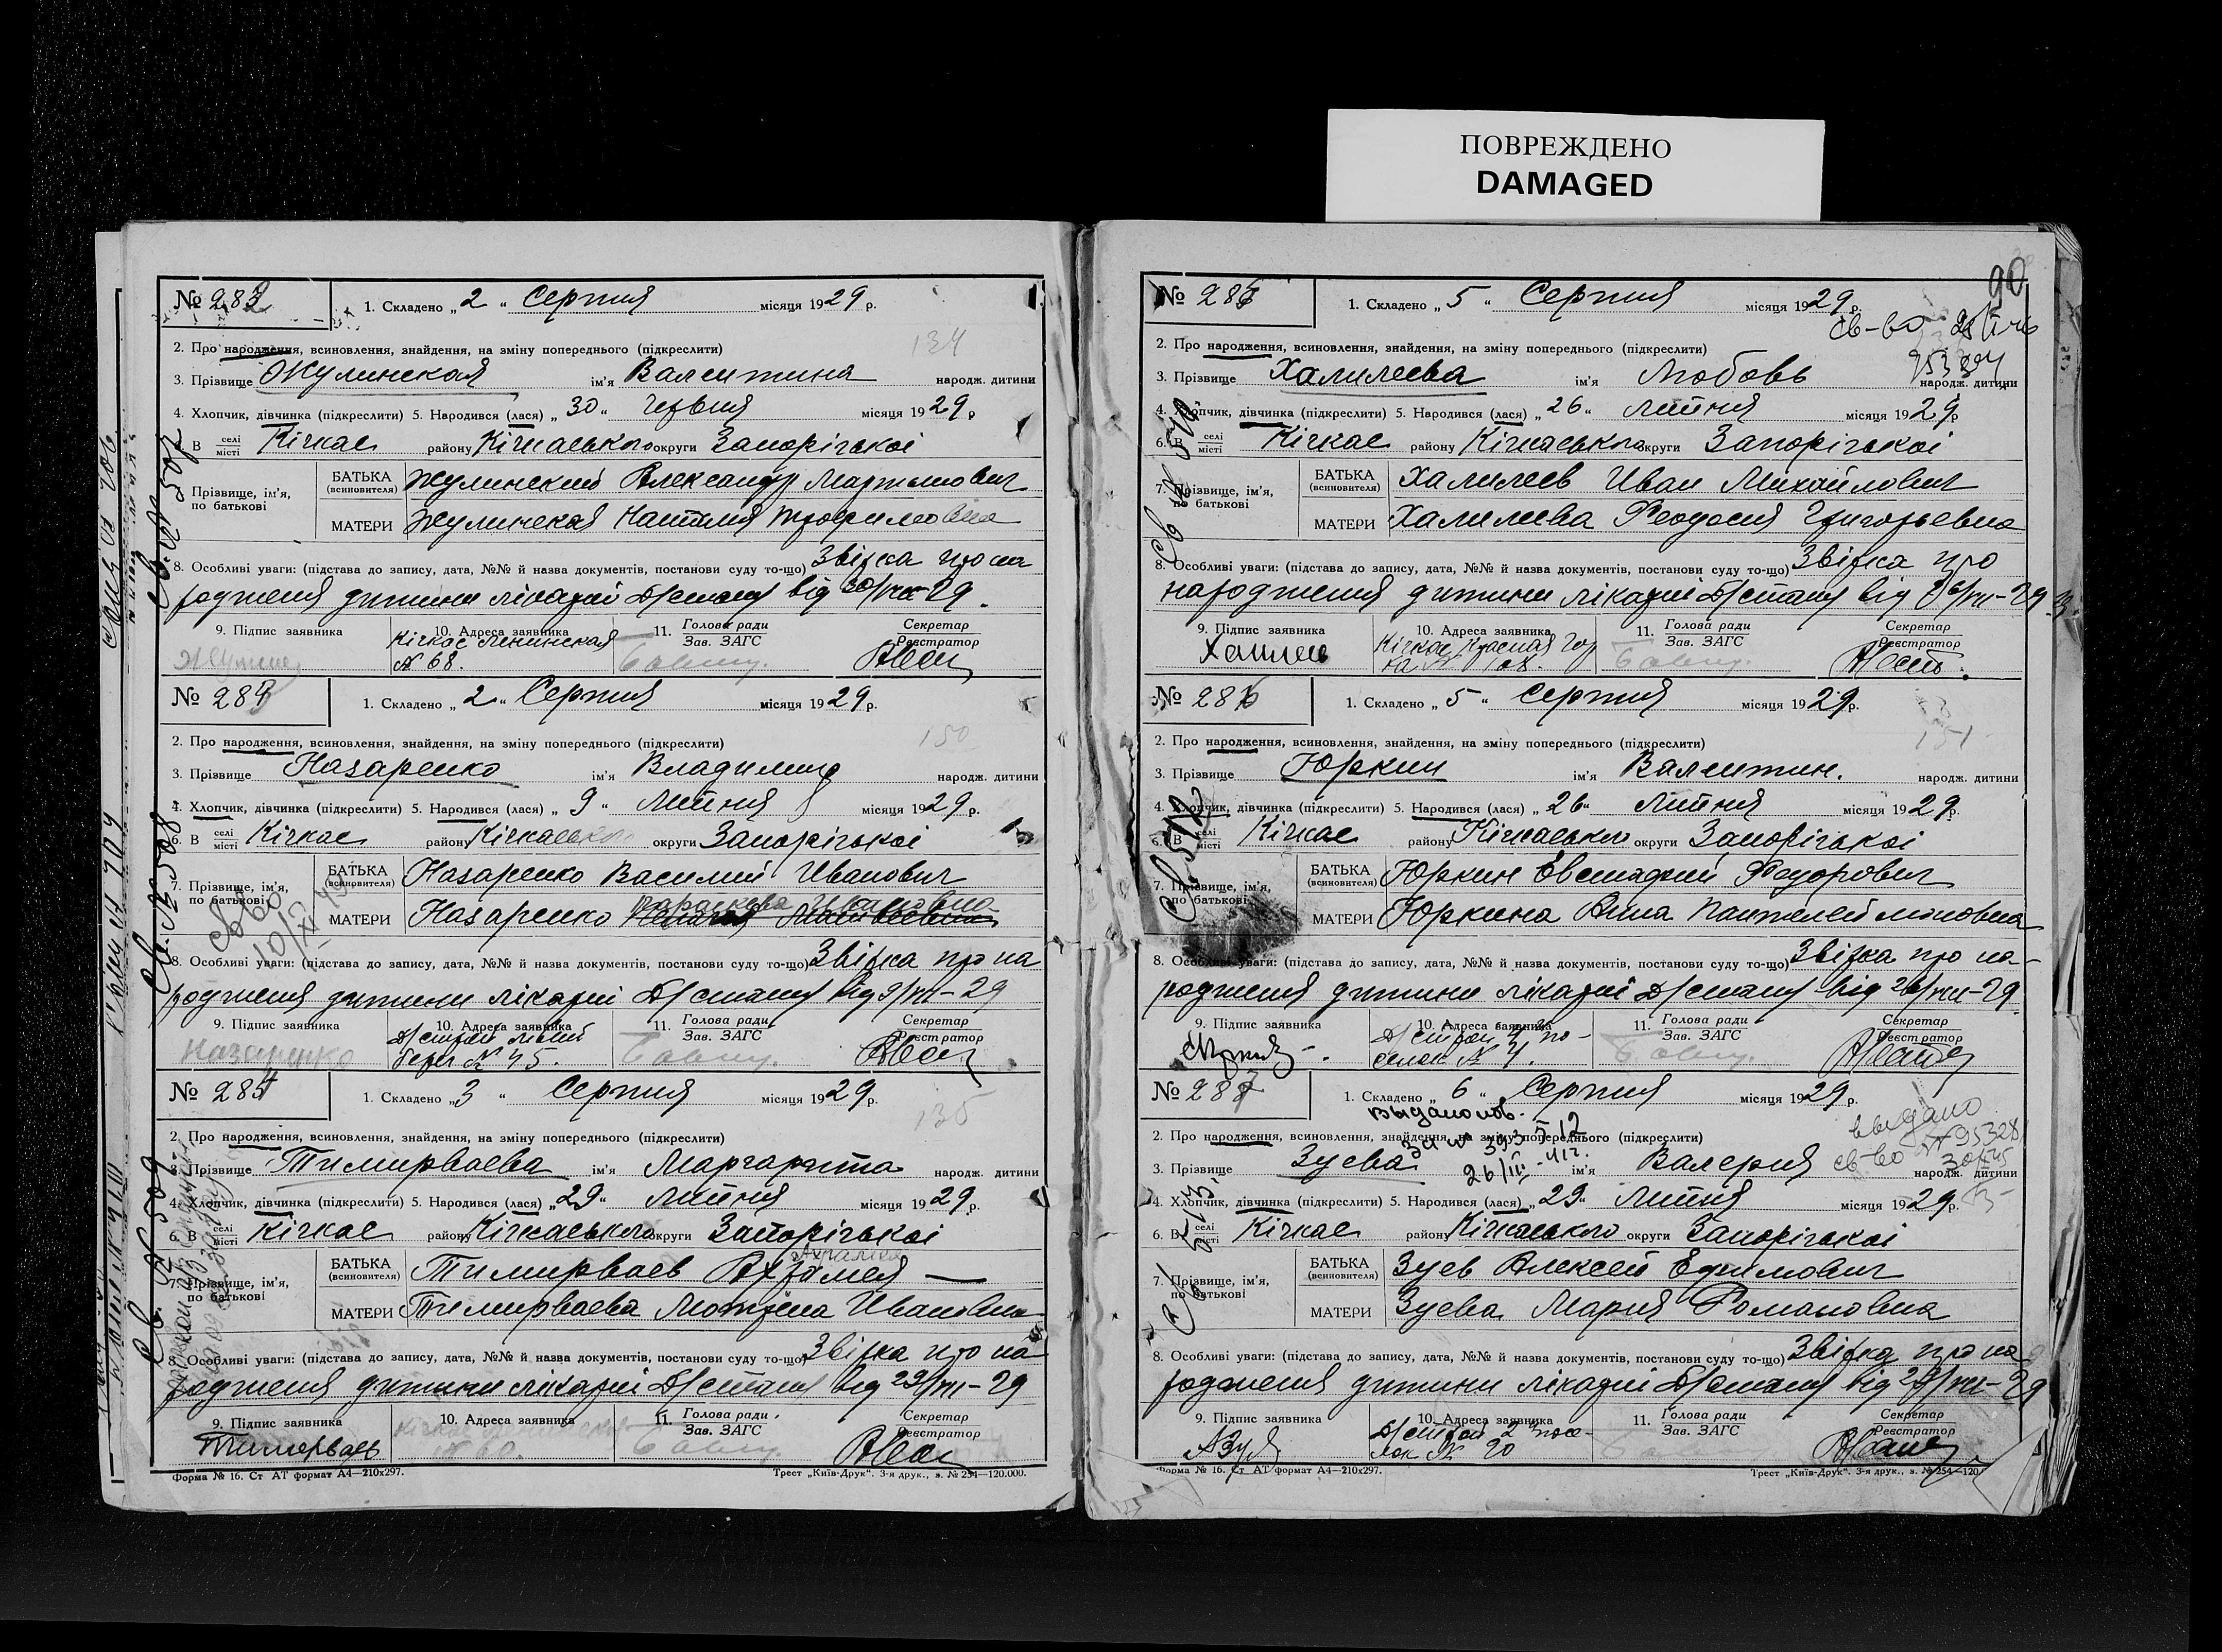 ПОВРЕЖДЕНО
DAMAGED
№ 282
1. Складено „ 2 “ Серпня місяця 1929 р.
134
2. Про народження, всиновлення, знайдення, на зміну попереднього (підкреслити)
3. Прізвище Жулинская ім'я Валентина народж. дитини
4. Хлопчик, дівчинка (підкреслити) 5. Народився (лася) „ 30 “ Червня місяця 1929 р
6. В селі місті Кічкас району Кічкаського округи Запорізької
7. Прізвище, ім'я, по батькові
БАТЬКА (всиновителя) Жулинский Александр Мартынович
МАТЕРИ Жулинская Наталия Трофимовна
8. Особливі уваги: (підстава до запису, дата, №№ й назва документів, постанови суду то-що) Звістка про на
родження дитини лікарні Д/стану від 30/VII-29.
9. Підпис заявника
10. Адреса заявника Кічкас Ленинская № 68.
11. Голова ради Зав. ЗАГС
Секретар Реєстратор
№ 283
1. Складено „ 2 “ Серпня місяця 1929 р.
150
2. Про народження, всиновлення, знайдення, на зміну попереднього (підкреслити)
3. Прізвище Назаренко ім'я Владимир народж. дитини
4. Хлопчик, дівчинка (підкреслити) 5. Народився (лася) „ 9 “ Липня місяця 1929 р.
6. В селі місті Кічкас району Кічкаського округи Запорізької
7. Прізвище, ім'я, по батькові
БАТЬКА (всиновителя) Назаренко Василий Иванович
Параскева Ивановна
МАТЕРИ Назаренко
8. Особливі уваги: (підстава до запису, дата, №№ й назва документів, постанови суду то-що) Звістка про на
родження дитини лікарні Д/стану від 9/VII-29
9. Підпис заявника Назаренко
10. Адреса заявника Д/строй левий берег № 45.
11. Голова ради Зав. ЗАГС
Секретар Реєстратор
№ 284
1. Складено „ 3 “ Серпня місяця 1929 р.
135
2. Про народження, всиновлення, знайдення, на зміну попереднього (підкреслити)
3. Прізвище Тимирваева ім'я Маргарита народж. дитини
4. Хлопчик, дівчинка (підкреслити) 5. Народився (лася) „ 29 “ Липня місяця 1929 р.
6. В селі місті Кічкас району Кічкаського округи Запорізької
7. Прізвище, ім'я, по батькові
БАТЬКА (всиновителя) Тимирваев
МАТЕРИ Тимирваева Мотрена Ивановна
8. Особливі уваги: (підстава до запису, дата, №№ й назва документів, постанови суду то-що) Звістка про на
родження дитини лікарні Д/стану від 29/VII-29
9. Підпис заявника Тимерваев
10. Адреса заявника
11. Голова ради Зав. ЗАГС
Секретар Реєстратор
Форма № 16. Ст АТ формат А4—210х297. Трест „Київ-Друк“. 3-я друк., з. № 254—120.000.
св. № 507
св. № 508
св-во
10/XI 49
св. № 509
90
№ 285
1. Складено „ 5 “ Серпня місяця 1929 р.
св-во
2. Про народження, всиновлення, знайдення, на зміну попереднього (підкреслити)
3. Прізвище Халилеева ім'я Любовь народж. дитини
4. Хлопчик, дівчинка (підкреслити) 5. Народився (лася) „ 26 “ Липня місяця 1929 р
6. В селі місті Кічкас району Кічкаського округи Запорізької
7. Прізвище, ім'я, по батькові
БАТЬКА (всиновителя) Халилеев Иван Михайлович
МАТЕРИ Халилеева Феодосия Григорьевна
8. Особливі уваги: (підстава до запису, дата, №№ й назва документів, постанови суду то-що) Звістка про
народження дитини лікарні Д/стану від 26/VII-29
9. Підпис заявника
10. Адреса заявника Кічкас Красная Гор
11. Голова ради Зав. ЗАГС
Секретар Реєстратор
№ 286
1. Складено „ 5 “ Серпня місяця 1929 р.
151
2. Про народження, всиновлення, знайдення, на зміну попереднього (підкреслити)
3. Прізвище Юркин ім'я Валентин. народж. дитини
4. Хлопчик, дівчинка (підкреслити) 5. Народився (лася) „ 26 “ Липня місяця 1929 р.
6. В селі місті Кічкас району Кічкаського округи Запорізької
7. Прізвище, ім'я, по батькові
БАТЬКА (всиновителя) Юркин Евстафий Федорович
МАТЕРИ Юркина Анна Пантелеймоновна
8. Особливі уваги: (підстава до запису, дата, №№ й назва документів, постанови суду то-що) Звістка про на-
родження дитини лікарні Д/стану від 26/VII-29
9. Підпис заявника
10. Адреса заявника Д/строй по- селок № 4.
11. Голова ради Зав. ЗАГС
Секретар Реєстратор
№ 287
1. Складено „ 6 “ Серпня місяця 1929 р.
выдано
за № 393
26/III-41г.
выдано
св-во № 95328
2. Про народження, всиновлення, знайдення, на зміну попереднього (підкреслити)
3. Прізвище Зуева ім'я Валерия народж. дитини
4. Хлопчик, дівчинка (підкреслити) 5. Народився (лася) „ 29 “ Липня місяця 1929 р.
6. В селі місті Кічкас району Кічкаського округи Запорізької
7. Прізвище, ім'я, по батькові
БАТЬКА (всиновителя) Зуев Алексей Ефимович
МАТЕРИ Зуева Мария Романовна
8. Особливі уваги: (підстава до запису, дата, №№ й назва документів, постанови суду то-що) Звістка про на
родження дитини лікарні Д/стану від 29/VII-29
9. Підпис заявника АЗуев
10. Адреса заявника Д/строй 2й посе- лок № 20
11. Голова ради Зав. ЗАГС
Секретар Реєстратор
Форма № 16. Ст АТ формат А4—210х297. Трест „Київ-Друк“. 3-я друк., з. № 254—120